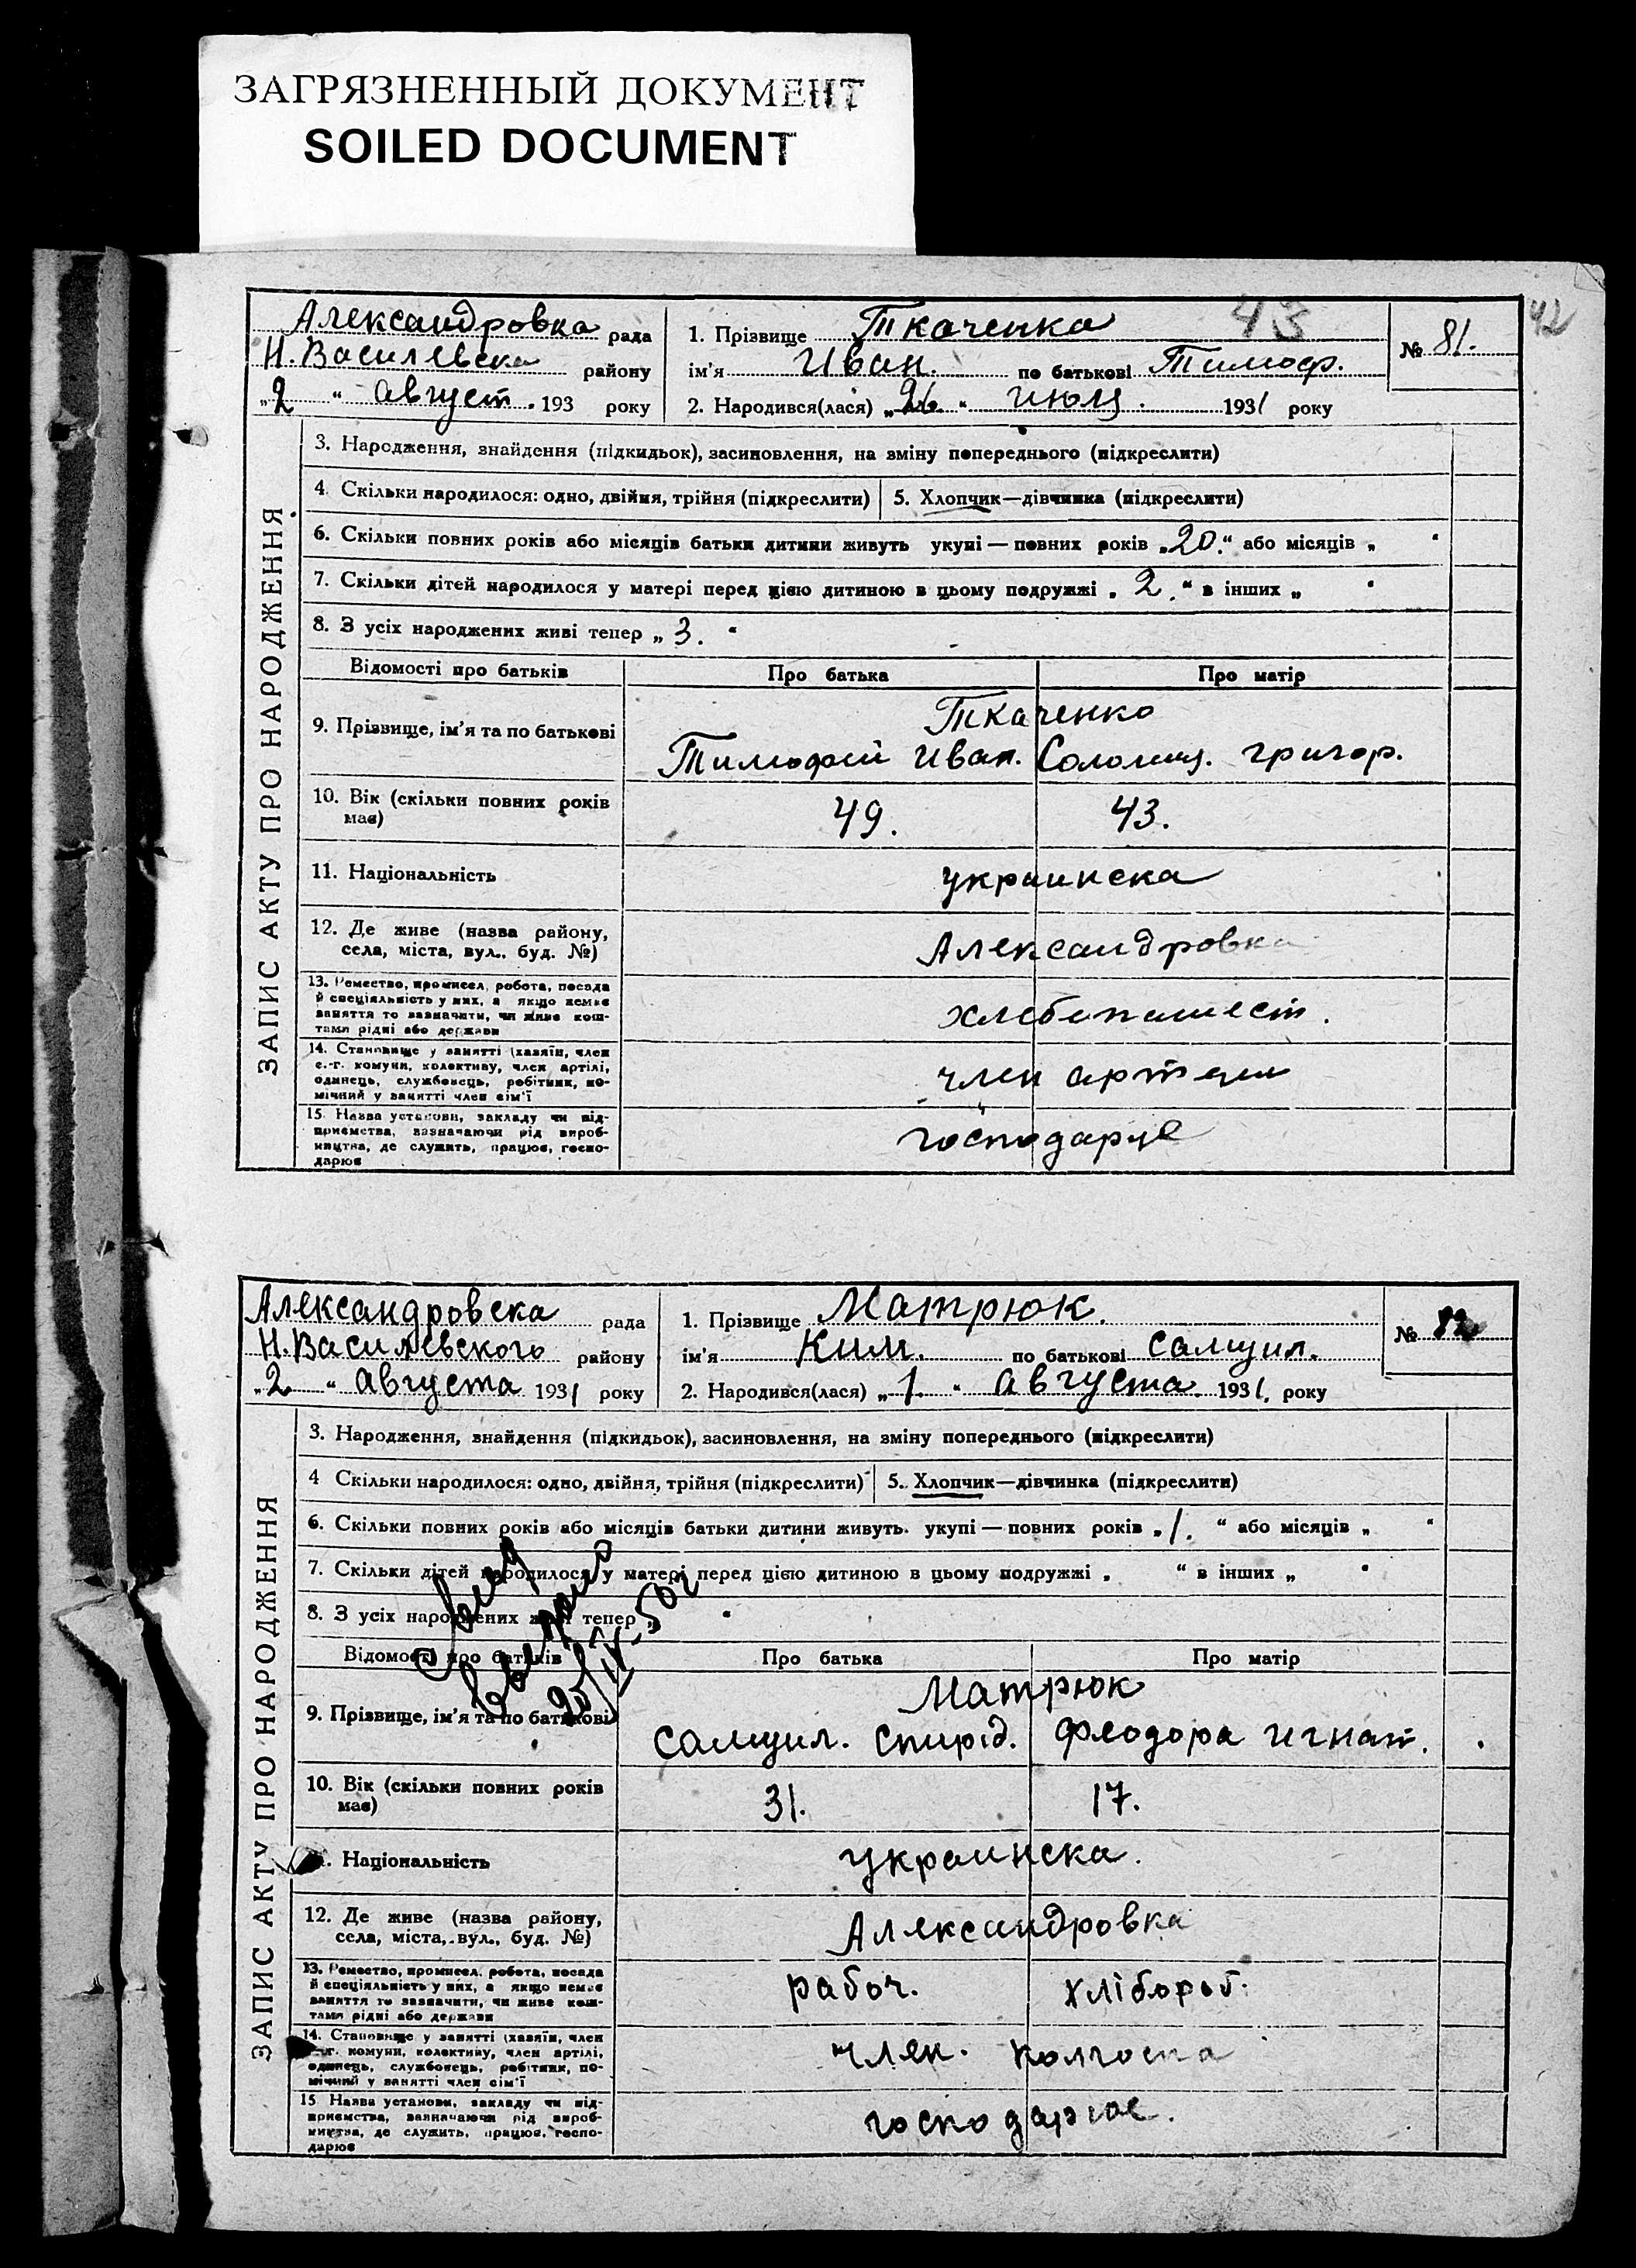 ЗАГРЯЗНЕННЫЙ ДОКУМЕНТ
SOILED DOCUMENT
42
43
Александровка рада
Н. Василевска району
„2“ август. 193 року
1. Прізвище Ткаченко
ім'я Иван. по батькові Тимоф.
2. Народився(лася) „26“ июля. 1931 року
№ 81.
ЗАПИС АКТУ ПРО НАРОДЖЕННЯ
3. Народження, знайдення (підкидьок), засиновлення, на зміну попереднього (підкреслити)
4. Скільки народилося: одно, двійня, трійня (підкреслити) 5. Хлопчик—дівчинка (підкреслити)
6. Скільки повних років або місяців батьки дитини живуть укупі — повних років „20.“ або місяців „ “
7. Скільки дітей народилося у матері перед цією дитиною в цьому подружжі „2.“ в інших „ “
8. З усіх народжених живі тепер „3.“
Відомості про батьків Про батька Про матір
9. Прізвище, ім'я та по батькові
Ткаченко
Тимофей Иван. Соломия. Григор.
10. Вік (скільки повних років має) 49. 43.
11. Національність украинска
12. Де живе (назва району,
села, міста, вул., буд. №)
Александровка
13. Ремество, промисел, робота, посада
й спеціяльність у них, а якщо немає
заняття то зазначити, чи живе кош-
тами рідні або держави
хлебопашест.
14. Становище у занятті (хазяїн, член
с.-г. комуни, колективу, член артілі,
одинець, службовець, робітник, по-
мічний у занятті член сім'ї
член артели
15. Назва установи, закладу чи під-
приємства, зазначаючи рід вироб-
ництва, де служить, працює, госпо-
дарює
господарує
Александровска рада
Н. Василевского району
„2“ Августа 1931 року
1. Прізвище Матрюк.
ім'я Ким. по батькові Самуил.
2. Народився(лася) „1.“ Августа. 1931. року
№ 82
ЗАПИС АКТУ ПРО НАРОДЖЕННЯ
3. Народження, знайдення (підкидьок), засиновлення, на зміну попереднього (підкреслити)
4 Скільки народилося: одно, двійня, трійня (підкреслити) 5. Хлопчик—дівчинка (підкреслити)
6. Скільки повних років або місяців батьки дитини живуть укупі — повних років „1.“ або місяців „ “
7. Скільки дітей народилося у матері перед цією дитиною в цьому подружжі „ “ в інших „ “
8. З усіх народжених живі тепер „ “
Відомості про батьків Про батька Про матір
9. Прізвище, ім'я та по батькові
Матрюк
Самуил. Спирід. Феодора Игнат.
10. Вік (скільки повних років має) 31. 17.
Національність украинска.
12. Де живе (назва району,
села, міста, вул., буд. №)
Александровка
13. Ремество, промисел, робота, посада
й спеціяльність у них, а якщо немає
заняття то зазначити, чи живе кош-
тами рідні або держави
рабоч. хлібороб.
14. Становище у занятті (хазяїн, член
с.-г. комуни, колективу, член артілі,
одинець, службовець, робітник, по-
мічний у занятті член сім'ї
член. колгоспа
15 Назва установи, закладу чи під-
приємства, зазначаючи рід вироб-
ництва, де служить, працює, госпо-
дарює
господарює.